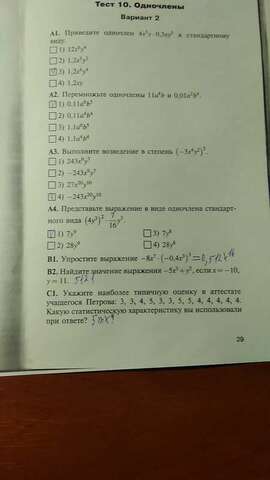 Тест 10. Одночлены
Вариант 2
А1. Приведите одночлен 4x³y · 0,3xy³ к стандартному
виду.
1) 12x³y⁴
2) 1,2x³y³
3) 1,2x⁴y⁴
4) 1,2xy
А2. Перемножьте одночлены 11a⁴b и 0,01a²b⁴.
1) 0,11a⁶b⁵
2) 0,11a⁸b⁴
3) 1,1a⁶b⁵
4) 1,1a⁸b⁴
А3. Выполните возведение в степень (−3x⁴y²)⁵.
1) 243x⁹y⁷
2) −243x⁹y⁷
3) 27x²⁰y¹⁰
4) −243x²⁰y¹⁰
А4. Представьте выражение в виде одночлена стандарт-
ного вида (4y²)² · 7/16 y⁵.
1) 7y⁹ 3) 7y⁸
2) 28y⁹ 4) 28y⁸
В1. Упростите выражение −8x⁷ · (−0,4x³)³ = 0,512x¹⁶
В2. Найдите значение выражения −5x³ + y², если x = −10,
y = 11. 5121
С1. Укажите наиболее типичную оценку в аттестате
учащегося Петрова: 3, 3, 4, 5, 3, 3, 5, 5, 4, 4, 4, 4, 4.
Какую статистическую характеристику вы использовали
при ответе?
29